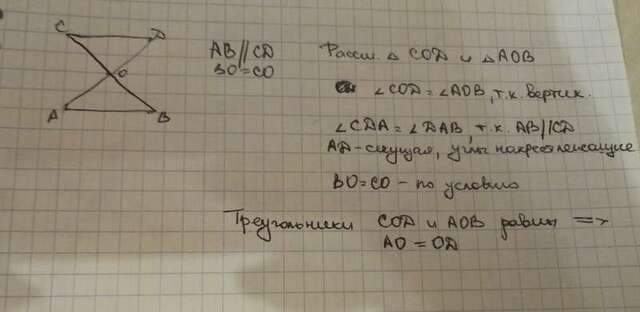 C
D
O
A
B
AB//CD
BO=CO
Рассм. △ COD и △AOB
∠COD = ∠AOB, т.к. вертик.
∠CDA = ∠DAB, т.к. AB//CD
AD - секущая, углы накрест лежащие
BO=CO - по условию
Треугольники COD и AOB равны =>
AO=OD